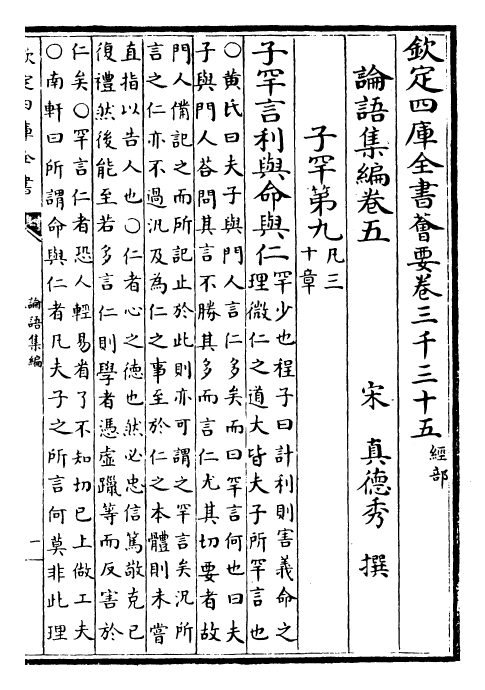 欽定四庫全書薈要卷三千三十五 經部
論語集編卷五
宋 真德秀 撰
子罕第九 凡三十章
子罕言利與命與仁 罕少也程子曰計利則害義命之
理微仁之道大皆夫子所罕言也
○黄氏曰夫子與門人言仁多矣而曰罕言何也曰夫
子與門人荅問其言不勝其多而言仁尤其切要者故
門人備記之而所記止於此則亦可謂之罕言矣况所
言之仁亦不過汎及為仁之事至於仁之本體則未嘗
直指以告人也○仁者心之德也然必忠信篤敬克已
復禮然後能至若多言仁則學者憑虚躐等而反害於
仁矣○罕言仁者恐人輕易看了不知切已上做工夫
○南軒曰所謂命與仁者凡夫子之所言何莫非此理
欽定四庫全書
論語集編
一